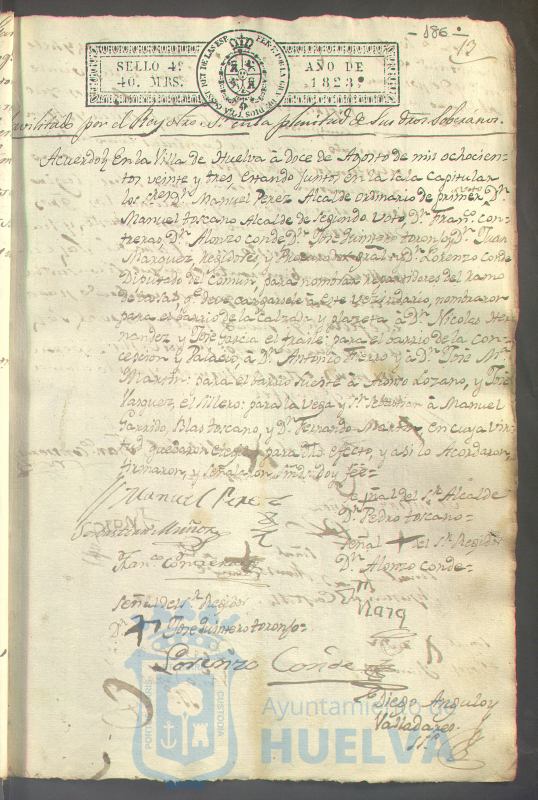 - 186 -
13
SELLO 4º
40. MRS.
AÑO DE
1823.
por el Rey ntro. Sr. en la plenitud de Sus dros. Soberanos.
Acuerdo En la Villa de Huelva à doce de Agosto de mil ochocien-
tos veinte y tres, estando juntos en la Sala Capitular
los Sres. Dn. Manuel Perez Alcalde ordinario de primer voto, Dn.
Manuel toscano Alcalde de Segundo voto, Dn. Franco. Con-
treras, Dn. Alonzo Conde, Dn. Tose Quintero toronso, y Dn. Juan
Marquez, Regidores, y Dn. Lorenzo Conde
Diputado del Comun, para nombrar repartidores del ramo
de qe. deve cargarsele à este Vezindario, nombraron
para el barrio de la Calzada y plazeta à Dn. Nicolas Her-
nandez y Tose Garcia el fraile: para el barrio de la Con-
cepcion y Palacio, à Dn. Antonio Fierro y à Dn. Tose Ma.
Martin: para el barrio fuente à Alonzo Lozano, y Tose
Vazquez, el Sillero: para la Vega y Sn. Sebastian à Manuel
Garrido, Blas toscano, y Dn. Fernando Martin, en cuya vir-
tud quedaron para dho. efecto, y asi lo Acordaron,
firmaron, y señalaron Sind. doy feè=
Manuel Perez
Señal del Sr. Alcalde
Dn. Pedro toscano=
Muñoz
Señal + del Sr. Regidor
Dn. Alonzo Conde=
Franco. Contreras
Señal del Sr. Regidor
Dn. Tose Quintero toronso=
Marq
Lorenzo Conde
Diego Angulo y
Valladares
Ayuntamiento de
HUELVA